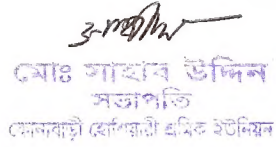 মোঃ সাহাব উদ্দিন
সভাপতি
কোনাবাড়ী হোসিয়ারী শ্রমিক ইউনিয়ন